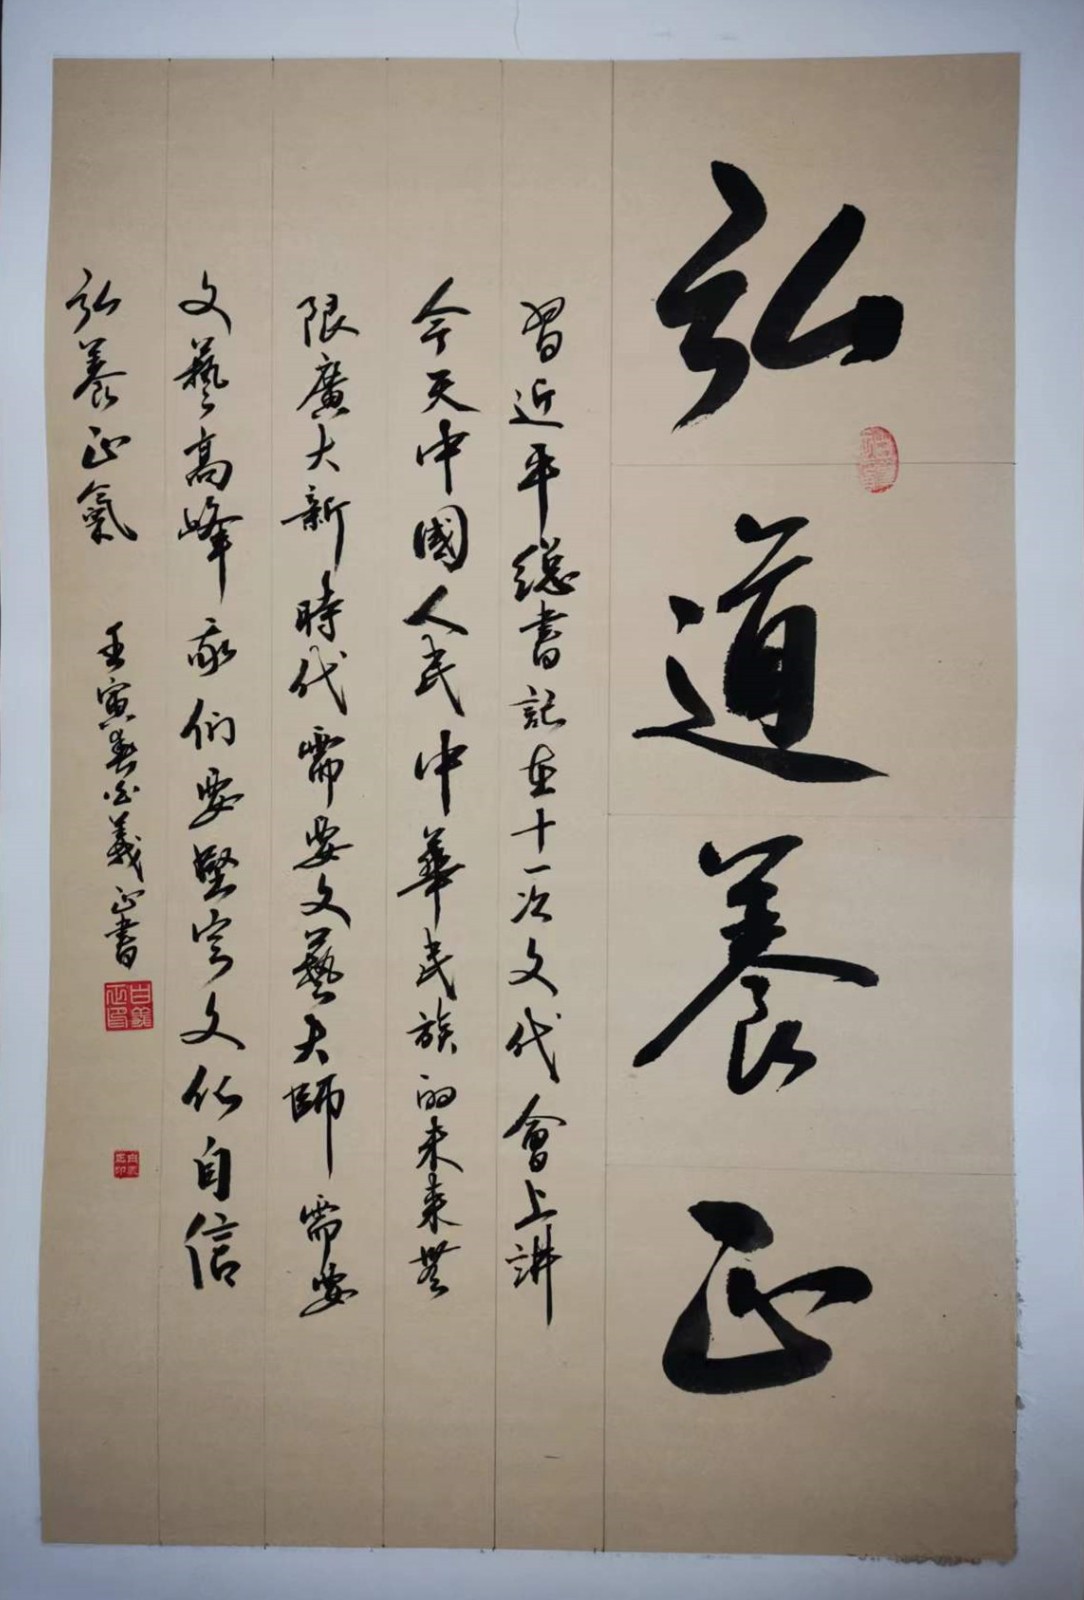 弘道養正
習近平總書記在十一次文代會上講
今天中國人民中華民族的未來無
限廣大新時代需要文藝大師需要
文藝高峰我們要堅定文化自信
弘養正氣 壬寅春白義正書
白義正印